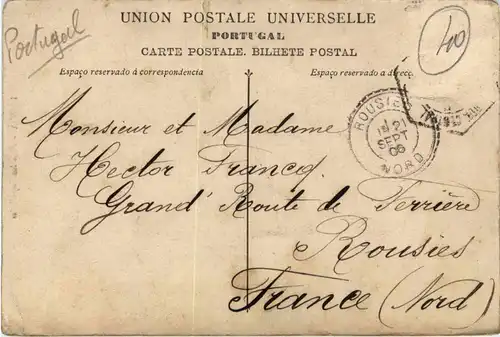 Portugal
UNION POSTALE UNIVERSELLE
PORTUGAL
CARTE POSTALE. BILHETE POSTAL
40
Espaço reservado á correspondencia
Espaço reservado a direcç.
ROUSIES
21
SEPT
06
NORD
Monsieur et Madame
Hector Francq
Grand' Route de Ferrière
Rousies
France (Nord)